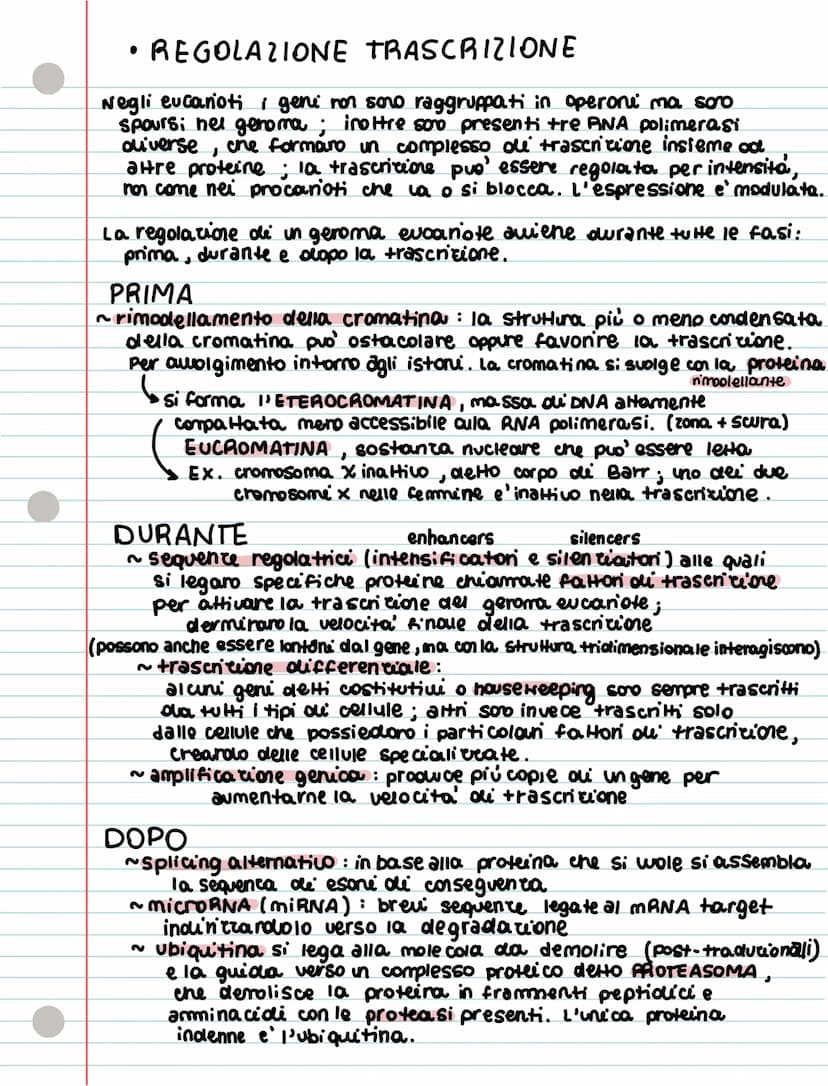 • REGOLAZIONE TRASCRIZIONE
Negli eucarioti i geni non sono raggruppati in operoni ma sono
sparsi nel genoma ; inoltre sono presenti tre RNA polimerasi
diverse , che formano un complesso di trascrizione insieme ad
altre proteine ; la trascrizione puo' essere regolata per intensità,
non come nei procarioti che va o si blocca. L'espressione e' modulata.
La regolazione di un genoma eucariote avviene durante tutte le fasi:
prima , durante e dopo la trascrizione.
PRIMA
~ rimodellamento della cromatina : la struttura più o meno condensata
della cromatina può ostacolare oppure favorire la trascrizione.
Per avvolgimento intorno agli istoni. La cromatina si svolge con la proteina
rimodellante
si forma l'ETEROCROMATINA , massa di DNA altamente
compattata meno accessibile alla RNA polimerasi. (zona + scura)
EUCROMATINA , sostanza nucleare che puo' essere letta
Ex. cromosoma X inattivo , detto corpo di Barr ; uno dei due
cromosomi x nelle femmine e' inattivo nella trascrizione .
DURANTE
enhancers silencers
~ sequenze regolatrici (intensificatori e silenziatori) alle quali
si legano specifiche proteine chiamate fattori di trascrizione
per attivare la trascrizione del genoma eucariote ;
derminano la velocita' finale della trascrizione
(possono anche essere lontani dal gene , ma con la struttura tridimensionale interagiscono)
~ trascrizione differenziale :
alcuni geni detti costitutivi o housekeeping sono sempre trascritti
da tutti i tipi di cellule ; altri sono invece trascritti solo
dalle cellule che possiedono i particolari fattori di trascrizione,
creando delle cellule specializzate.
~ amplificazione genica : produce più copie di un gene per
aumentarne la velocita' di trascrizione
DOPO
~ splicing alternativo : in base alla proteina che si vuole si assembla
la sequenza di esoni di conseguenza
~ microRNA (miRNA) : brevi sequenze legate al mRNA target
indirizzandolo verso la degradazione
~ ubiquitina si lega alla molecola da demolire (post-traduzionali)
e la guida verso un complesso proteico detto PROTEASOMA ,
che demolisce la proteina in frammenti peptidici e
amminacidi con le proteasi presenti. L'unica proteina
indenne e' l'ubiquitina.